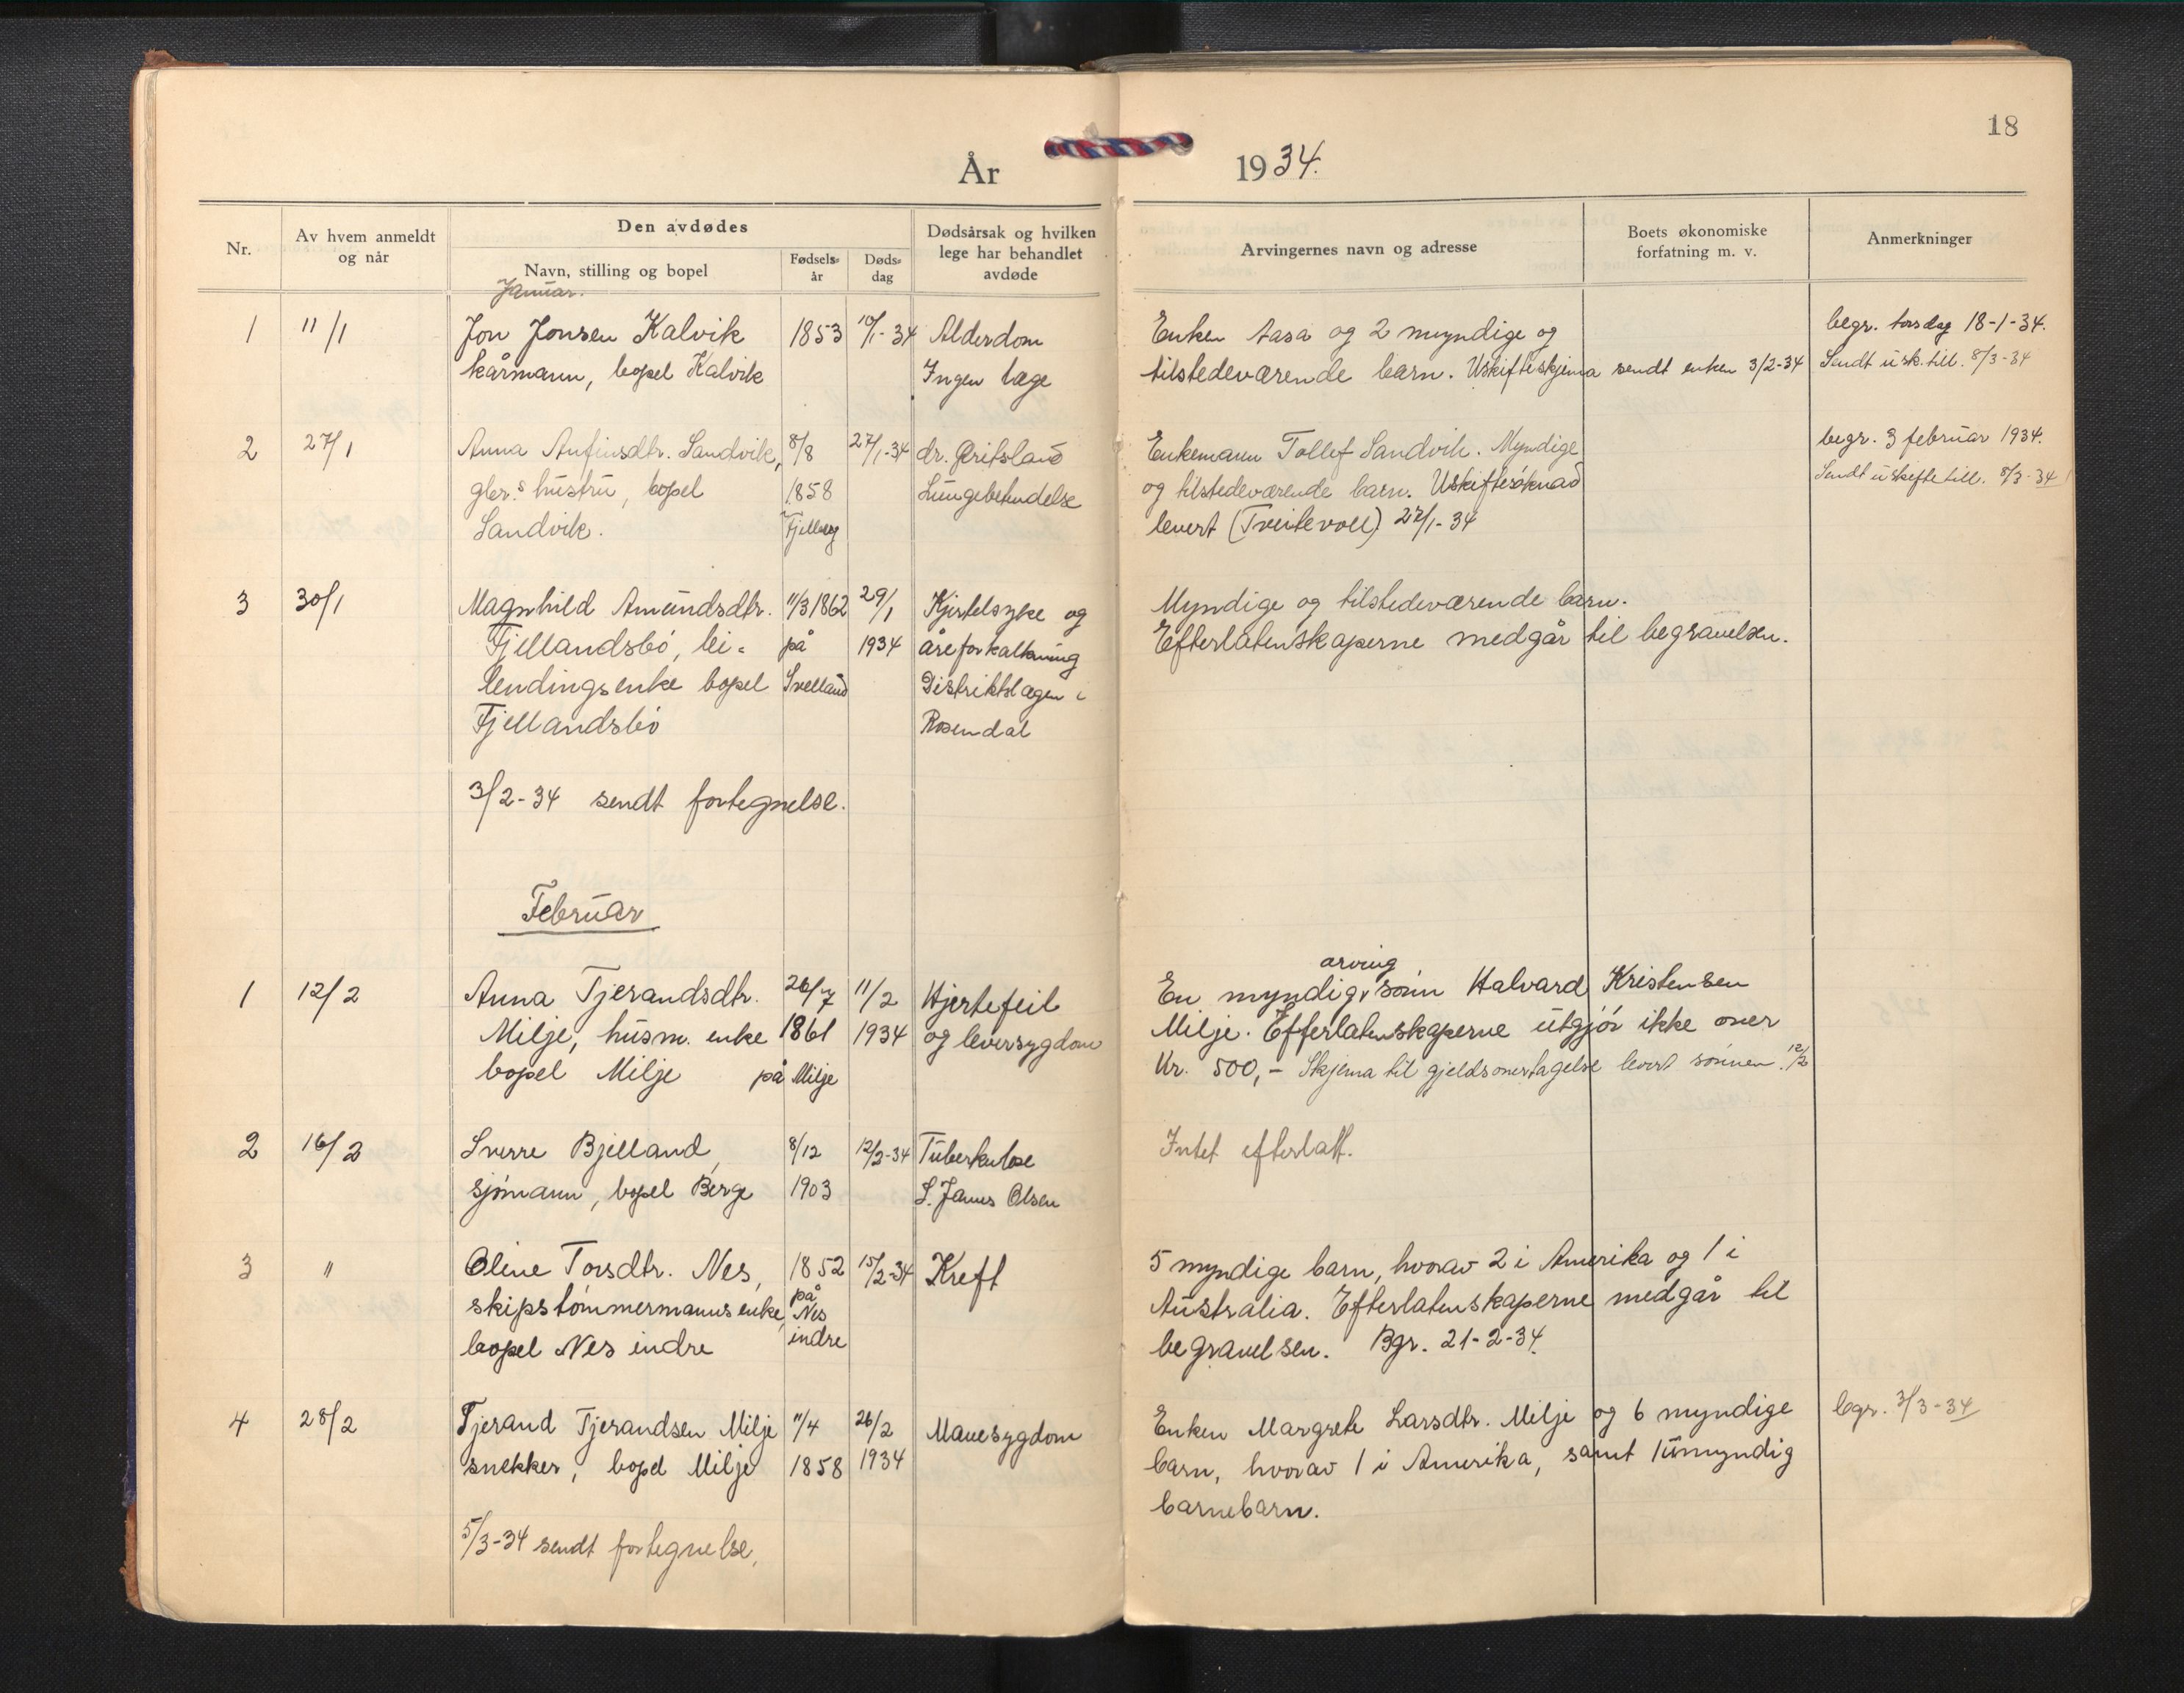 18
År 1934.
Nr.
Av hvem anmeldt og når
Den avdødes
Navn, stilling og bopel
Fødsels- år
Døds- dag
Dødsårsak og hvilken lege har behandlet avdøde
Arvingernes navn og adresse
Boets økonomiske forfatning m. v.
Anmerkninger
Januar.
1 11/1 Jon Jonsen Kalvik 1853 10/1-34 Alderdom Enken Aasa og 2 myndige og begr. torsdag 18-1-34.
kårmann, bopel Kalvik Ingen læge tilstedeværende barn. Uskifteskjema sendt enken 3/2-34 Sendt usk. till. 8/3-34
2 27/1 Anna Anfinsdtr. Sandvik, 8/8 27/1-34 dr. Enkemann Tollef Sandvik. Myndige begr. 3 februar 1934.
gbr.s hustru, bopel 1858 Lungebetendelse og tilstedeværende barn. Uskiftesøknad Sendt uskifte till. 8/3-34
Sandvik. Fjelberg levert (Tveitevoll) 27/1-34
3 30/1 Magnhild Amundsdtr. 11/3 1862 29/1 Kjertelsyke og Myndige og tilstedeværende barn.
Fjellandsbø, lei- på 1934 åreforkalkning Efterlatenskaperne medgår til begravelsen.
lendingsenke bopel Distriktslægen i
Fjellandsbø Rosendal
3/2-34 sendt fortegnelse.
Februar
1 12/2 Anna Tjerandsdtr. 26/7 11/2 Hjertefeil En myndig arving sønn Halvard Kristensen
Milje, husm. enke 1861 1934 og leversygdom Milje. Efterlatenskaperne utgjør ikke over
bopel Milje på Milje Kr. 500,- Skjema til gjeldsovertagelse levert sønnen. 12/2
2 16/2 Sverre Bjelland, 8/12 12/2-34 Tuberkulose Intet efterlatt.
sjømann, bopel Berge 1903 L. James Olsen
3 " Oline Torsdtr. Nes, 1852 15/2-34 Kreft 5 myndige barn, hvorav 2 i Amerika og 1 i
skipstømmermannsenke, på Nes Australia. Efterlatenskaperne medgår til
bopel Nes indre indre begravelsen. Bgr. 21-2-34.
4 28/2 Tjerand Tjerandsen Milje 11/4 26/2 Mavesygdom Enken Margrete Larsdtr. Milje og 6 myndige begr. 3/3-34
snekker, bopel Milje 1858 1934 barn, hvorav 1 i Amerika, samt 1 umyndig
barnebarn.
5/3-34 sendt fortegnelse,